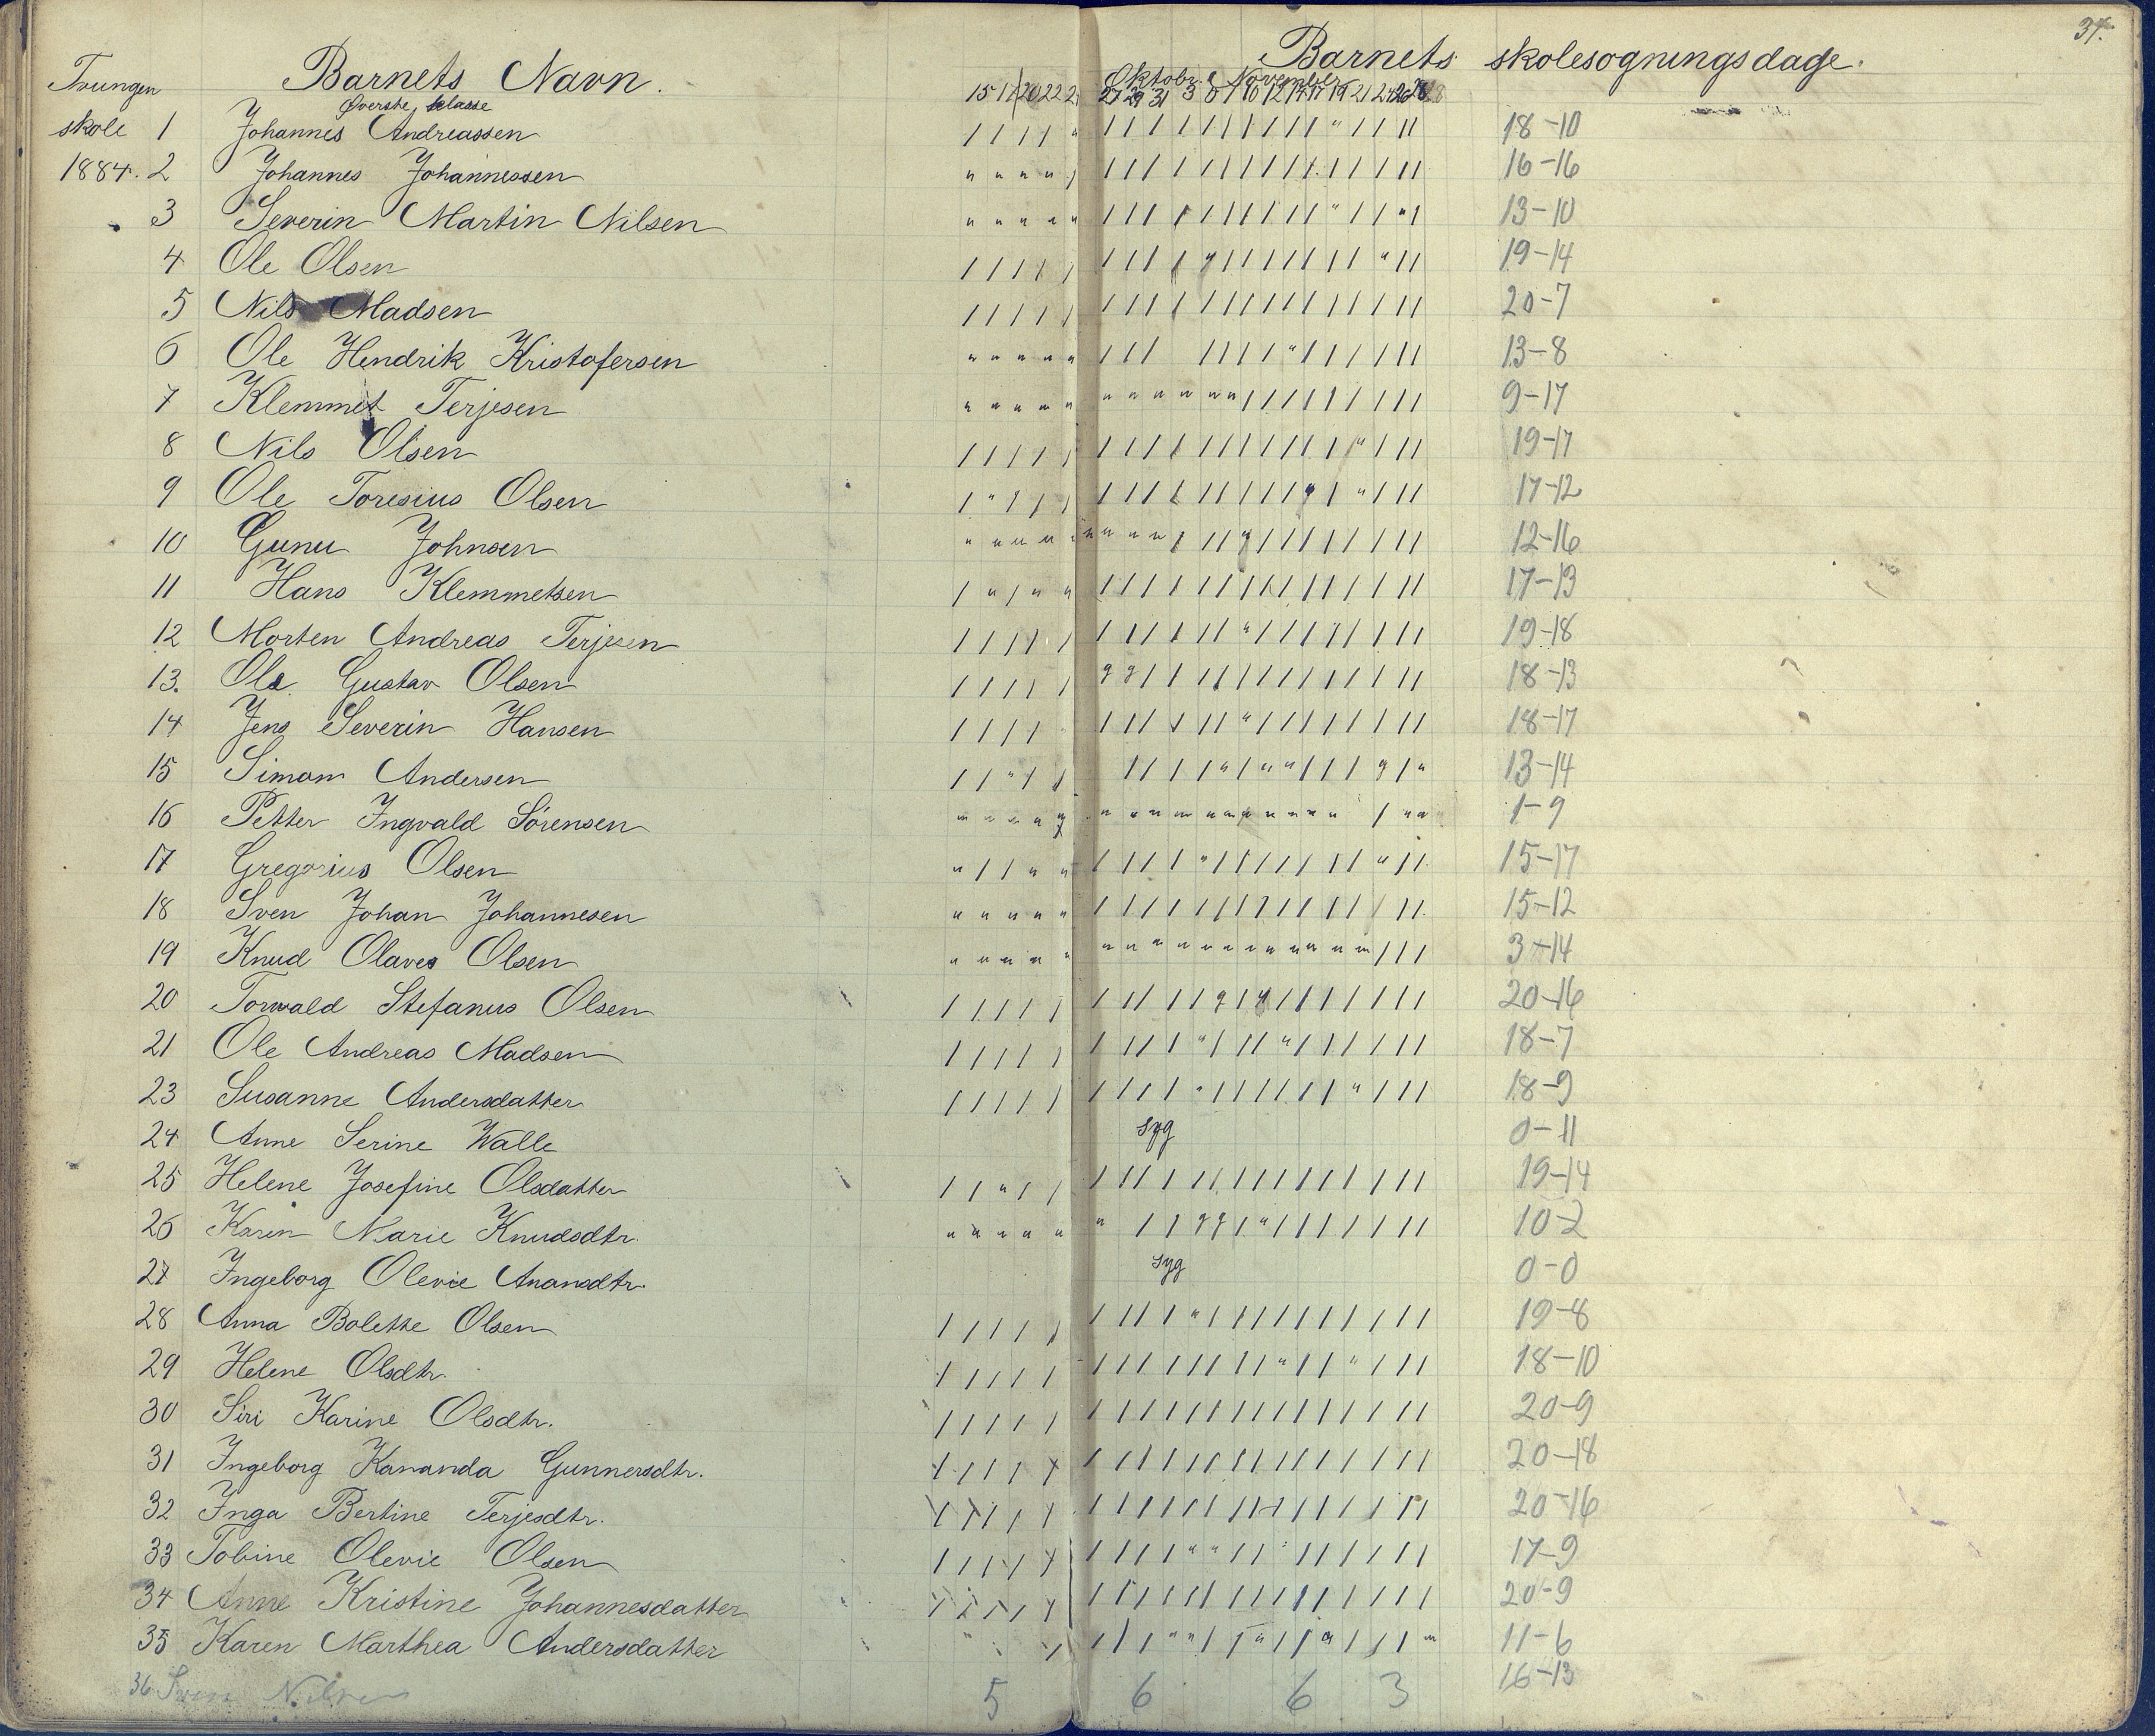 34.
Barnets Navn. Barnets skolesøgningsdage.
Trungen Oktobr. & November
Øverste klasse 15 17 20 22 27 29 31 3 10 12 14 17 19 21 24 26 28
skole 1 Johannes Andreassen 1 1 1 1 " 1 1 1 1 1 1 1 1 1 1 " 1 1 1 1 18-10
1884. 2 Johannes Johannessen " " " " 1 1 1 1 1 1 1 1 1 1 1 1 1 1 1 1 16-16
3 Severin Martin Nilsen " " " " " 1 1 1 1 1 1 1 1 1 1 " 1 1 " 1 13-10
4 Ole Olsen 19-14
5 Nils Madsen 20-7
6 Ole Hendrik Kristofersen 13-8
7 Klemmet Terjesen 9-17
8 Nils Olsen 19-17
9 Ole Toresius Olsen 17-12
10 Gunu Johnsen 12-16
11 Hans Klemmetsen 17-13
12 Morten Andreas Terjesen 19-18
13. Ole Gustav Olsen 18-13
14 Jens Severin Hansen 18-17
15 Simom Andersen 13-14
16 Petter Ingvald Sørensen 1-9
17 Gregorius Olsen 15-17
18 Sven Johan Johannesen 15-12
19 Knud Olaves Olsen 3-14
20 Torwald Stefanus Olsen 20-16
21 Ole Andreas Madsen 18-7
23 Susanne Andersdatter 18-9
24 Anne Serine Walle syg 0-11
25 Helene Josefine Olsdatter 19-14
26 Karen Marie Knudsdtr. 10-2
27 Ingeborg Olevie Anansdtr. syg 0-0
28 Anna Bolette Olsen 19-8
29 Helene Olsdtr. 18-10
30 Siri Karine Olsdtr. 20-9
31 Ingeborg Kananda Gunnersdtr. 20-18
32 Inga Bertine Terjesdtr. 20-16
33 Tobine Olevie Olsen 17-9
34 Anne Kristine Johannesdatter 20-9
35 Karen Marthea Andersdatter 11-6
36 Sven Nilsen 5 6 6 3 16-13